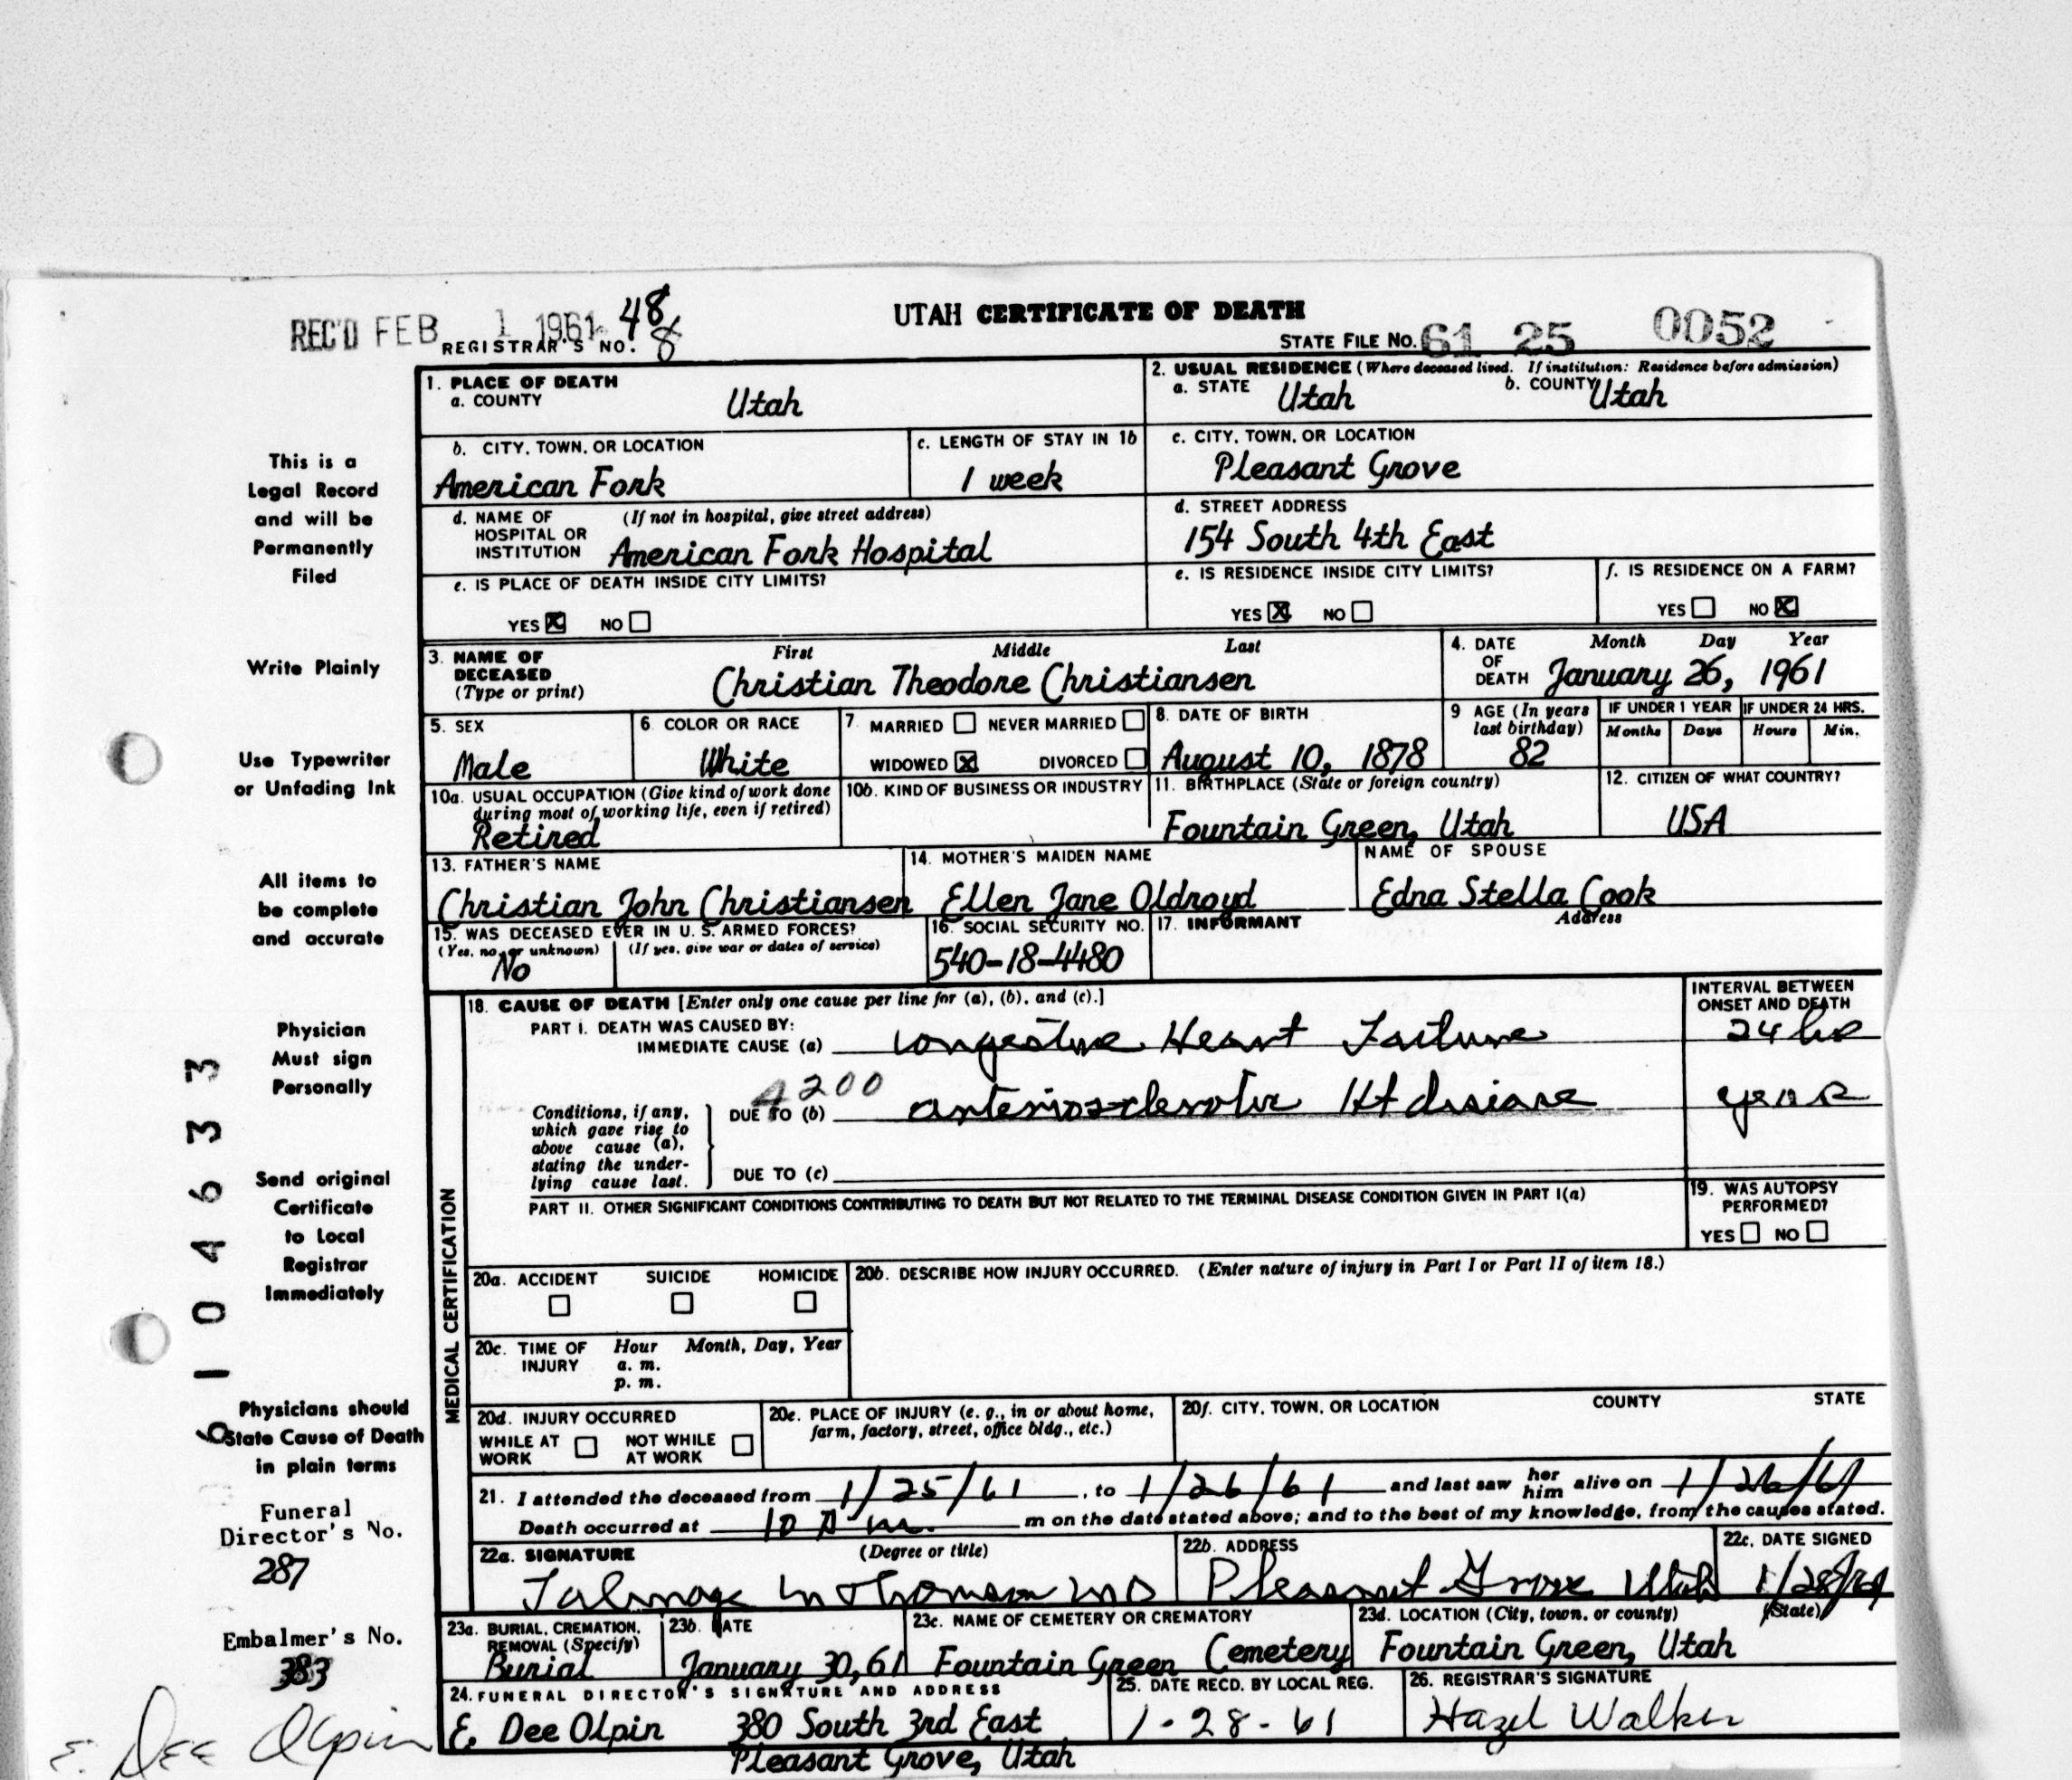 REC'D FEB 1 1961
REGISTRAR'S NO. 48
8
UTAH CERTIFICATE OF DEATH
STATE FILE NO. 61 25 0052
1. PLACE OF DEATH
a. COUNTY Utah
2. USUAL RESIDENCE (Where deceased lived. If institution: Residence before admission)
a. STATE Utah b. COUNTY Utah
b. CITY, TOWN, OR LOCATION
American Fork
c. LENGTH OF STAY IN 1b
1 week
c. CITY, TOWN, OR LOCATION
Pleasant Grove
d. NAME OF HOSPITAL OR INSTITUTION (If not in hospital, give street address)
American Fork Hospital
d. STREET ADDRESS
154 South 4th East
e. IS PLACE OF DEATH INSIDE CITY LIMITS?
YES ☒ NO ☐
e. IS RESIDENCE INSIDE CITY LIMITS?
YES ☒ NO ☐
f. IS RESIDENCE ON A FARM?
YES ☐ NO ☒
3. NAME OF DECEASED (Type or print)
First Middle Last
Christian Theodore Christiansen
4. DATE OF DEATH
Month Day Year
January 26, 1961
5. SEX
Male
6. COLOR OR RACE
White
7. MARRIED ☐ NEVER MARRIED ☐
WIDOWED ☒ DIVORCED ☐
8. DATE OF BIRTH
August 10, 1878
9 AGE (In years last birthday)
82
IF UNDER 1 YEAR
Months Days
IF UNDER 24 HRS.
Hours Min.
10a. USUAL OCCUPATION (Give kind of work done during most of working life, even if retired)
Retired
10b. KIND OF BUSINESS OR INDUSTRY
11. BIRTHPLACE (State or foreign country)
Fountain Green, Utah
12. CITIZEN OF WHAT COUNTRY?
USA
13. FATHER'S NAME
Christian John Christiansen
14. MOTHER'S MAIDEN NAME
Ellen Jane Oldroyd
NAME OF SPOUSE
Edna Stella Cook
15. WAS DECEASED EVER IN U. S. ARMED FORCES?
(Yes, no, or unknown) (If yes, give war or dates of service)
No
16. SOCIAL SECURITY NO.
540-18-4480
17. INFORMANT Address
MEDICAL CERTIFICATION
18. CAUSE OF DEATH [Enter only one cause per line for (a), (b), and (c).]
INTERVAL BETWEEN ONSET AND DEATH
PART I. DEATH WAS CAUSED BY:
IMMEDIATE CAUSE (a) Congestive Heart Failure 24 hrs
4200
Conditions, if any, which gave rise to above cause (a), stating the underlying cause last.
DUE TO (b) arteriosclerotic Ht disease years
DUE TO (c)
PART II. OTHER SIGNIFICANT CONDITIONS CONTRIBUTING TO DEATH BUT NOT RELATED TO THE TERMINAL DISEASE CONDITION GIVEN IN PART I(a)
19. WAS AUTOPSY PERFORMED?
YES ☐ NO ☐
20a. ACCIDENT SUICIDE HOMICIDE
☐ ☐ ☐
20b. DESCRIBE HOW INJURY OCCURRED. (Enter nature of injury in Part I or Part II of item 18.)
20c. TIME OF INJURY
Hour Month, Day, Year
a. m.
p. m.
20d. INJURY OCCURRED
WHILE AT WORK ☐ NOT WHILE AT WORK ☐
20e. PLACE OF INJURY (e. g., in or about home, farm, factory, street, office bldg., etc.)
20f. CITY, TOWN, OR LOCATION COUNTY STATE
21. I attended the deceased from 1/25/61, to 1/26/61 and last saw her him alive on 1/26/61
Death occurred at 10 A m. m on the date stated above; and to the best of my knowledge, from the causes stated.
22a. SIGNATURE (Degree or title)
Talmage MD
22b. ADDRESS
Pleasant Grove Utah
22c. DATE SIGNED
1/28/61
23a. BURIAL, CREMATION, REMOVAL (Specify)
Burial
23b. DATE
January 30, 61
23c. NAME OF CEMETERY OR CREMATORY
Fountain Green Cemetery
23d. LOCATION (City, town, or county) (State)
Fountain Green, Utah
24. FUNERAL DIRECTOR'S SIGNATURE AND ADDRESS
E. Dee Olpin 380 South 3rd East
Pleasant Grove, Utah
25. DATE RECD. BY LOCAL REG.
1-28-61
26. REGISTRAR'S SIGNATURE
Hazel Walker
This is a
Legal Record
and will be
Permanently
Filed
Write Plainly
Use Typewriter
or Unfading Ink
All items to
be complete
and accurate
Physician
Must sign
Personally
Send original
Certificate
to Local
Registrar
Immediately
Physicians should
State Cause of Death
in plain terms
Funeral
Director's No.
287
Embalmer's No.
383
E. Dee Olpin
6104633